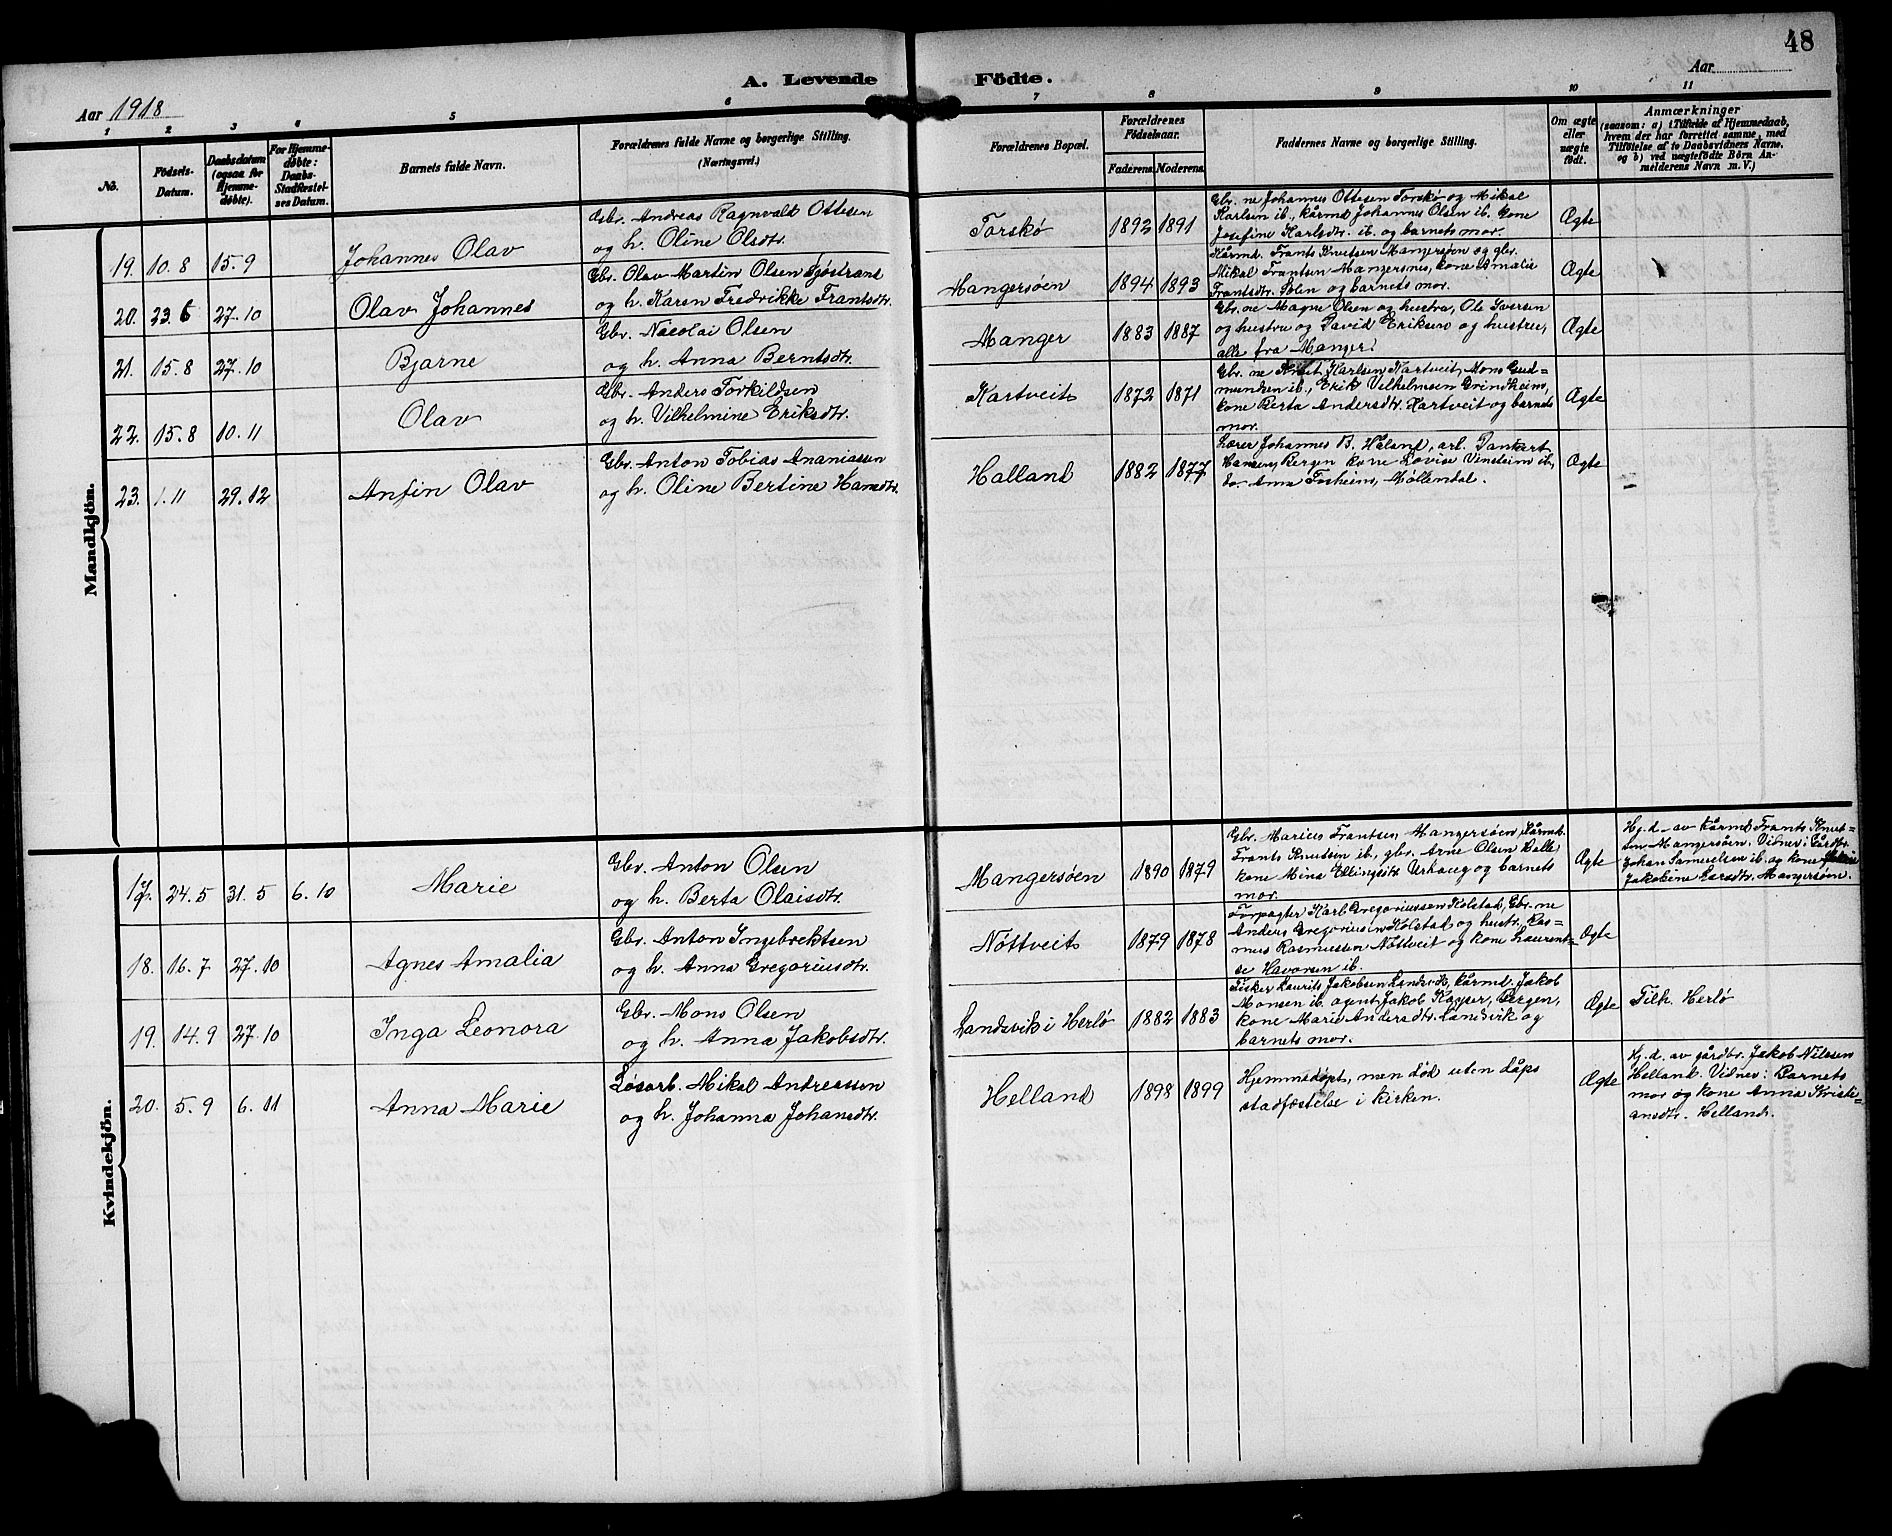 48
A. Levende Födte.
Aar 1918
Aar
1 2 3 4 5 6 7 8 9 10 11
No.
Födsels-
Datum.
Daabsdatum
(ogsaa for
Hjemme-
døbte).
For Hjemme-
døbte:
Daabs-
Stadfæstel-
ses Datum.
Barnets fulde Navn.
Forældrenes fulde Navne og borgerlige Stilling.
(Næringsvei.)
Forældrenes Bopæl.
Forældrenes
Födselsaar.
Faderens. Moderens.
Faddernes Navne og borgerlige Stilling.
Om ægte
eller
uægte
født.
Anmærkninger
(saasom: a) i Tilfælde af Hjemmedaab,
hvem der har forrettet samme, med
Tilföielse af to Daabsvidners Navne,
og b) ved uægtefödte Börn An-
melderens Navn m. V.)
Mandkjön.
19. 10.8 15.9
Johannes Olav
Gbr. Andreas Ragnvald Ottesen
og h. Oline Olsdtr.
Torskø
1892 1891
Gbr. ne Johannes Ottesen Torskø og Mikal
Karlsen ib., kårmd. Johannes Olsen ib. kone
Josefine Karlsdtr. ib. og barnets mor.
Ægte
20. 23.6 27.10
Olav Johannes
Gbr. Olav Martin Olsen Sjöstrand
og h. Karen Fredrikke Frantsdtr.
Mangersøen
1894 1893
Kårmd. Frants Knutsen Mangersøen og gbr.
Mikal Frantsen Mangersnes, kone Amalie
Frantsdtr. Solen og barnets mor.
Ægte
21. 15.8 27.10
Bjarne
Gbr. Nicolai Olsen
og h. Anna Berntsdtr.
Manger
1883 1887
Gbr. ne Magne Olsen og hustru, Ole Iversen
og hustru og David Eriksen og hustru,
alle fra Manger.
Ægte
22. 15.8 10.11
Olav
Gbr. Anders Torkildsen
og h. Vilhelmine Eriksdtr.
Kartveit
1872 1871
Gbr. ne Knut Karlsen Kartveit, Mons Gud-
mundsen ib., Erik Vilhelmsen Grindheim,
kone Berta Andersdtr. Kartveit og barnets
mor.
Ægte
23. 1.11 29.12
Anfin Olav
Gbr. Anton Tobias Ananiassen
og h. Oline Bertine Hansdtr.
Halland
1882 1877
Lærer Johannes B. Håland, arb. Dankert
Hansen, Bergen kone Lovise Vinsteim ib,
do. Anna Forsheim, Møllendal.
Ægte
Kvindekjön.
17. 24.5 31.5 6.10
Marie
Gbr. Anton Olsen
og h. Berta Olaisdtr.
Mangersøen
1890 1879
Gbr. Marius Frantsen, Mangersøen, kårmd.
Frants Knutsen ib., gbr. Arne Olsen Dalle
kone Mina Ellingsdtr. Urhaug og barnets
mor.
Ægte
Hj. d. av kårmd. Frants Knut-
sen Mangersøen. Vidner: Gårdbr.
Johan Samuelsen ib. og kone
Jakobine Larsdtr. Mangersøen.
18. 16.7 27.10
Agnes Amalia
Gbr. Anton Ingebrektsen
og h. Anna Gregoriusdtr.
Nöttveit
1879 1878
Forpagter Karl Gregoriussen Kolstad, Gbr. ne
Anders Gregoriussen Kolstad og hustr. Ras-
mus Rasmussen Nöttveit og kone Laurent-
se Havorsen ib.
Ægte
19. 14.9 27.10
Inga Leonora
Gbr. Mons Olsen
og h. Anna Jakobsdtr.
Landsvik i Herlø
1882 1883
Fisker Laurits Jakobsen Landsvik, kårmd. Jakob
Monsen ib. agent Jakob Kasper, Bergen,
kone Marie Andersdtr. Landsvik og
barnets mor.
Ægte
Tilh. Herlø
20. 5.9 6.11
Anna Marie
Løsarb. Mikal Andreassen
og h. Johanna Johansdtr.
Helland
1898 1899
Hjemmedøpt, men død uten dåps
stadfæstelse i kirken.
Ægte
Hj. d. av gårdbr. Jakob Nilssen
Helland. Vidner: Barnets
mor og kone Anna Kristi-
ansdtr. Helland.